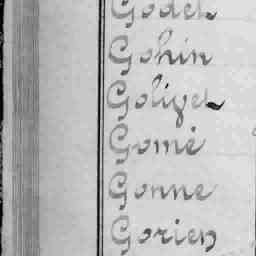 Godet
Gohin
Golivet
Gomé
Gonne
Gorien